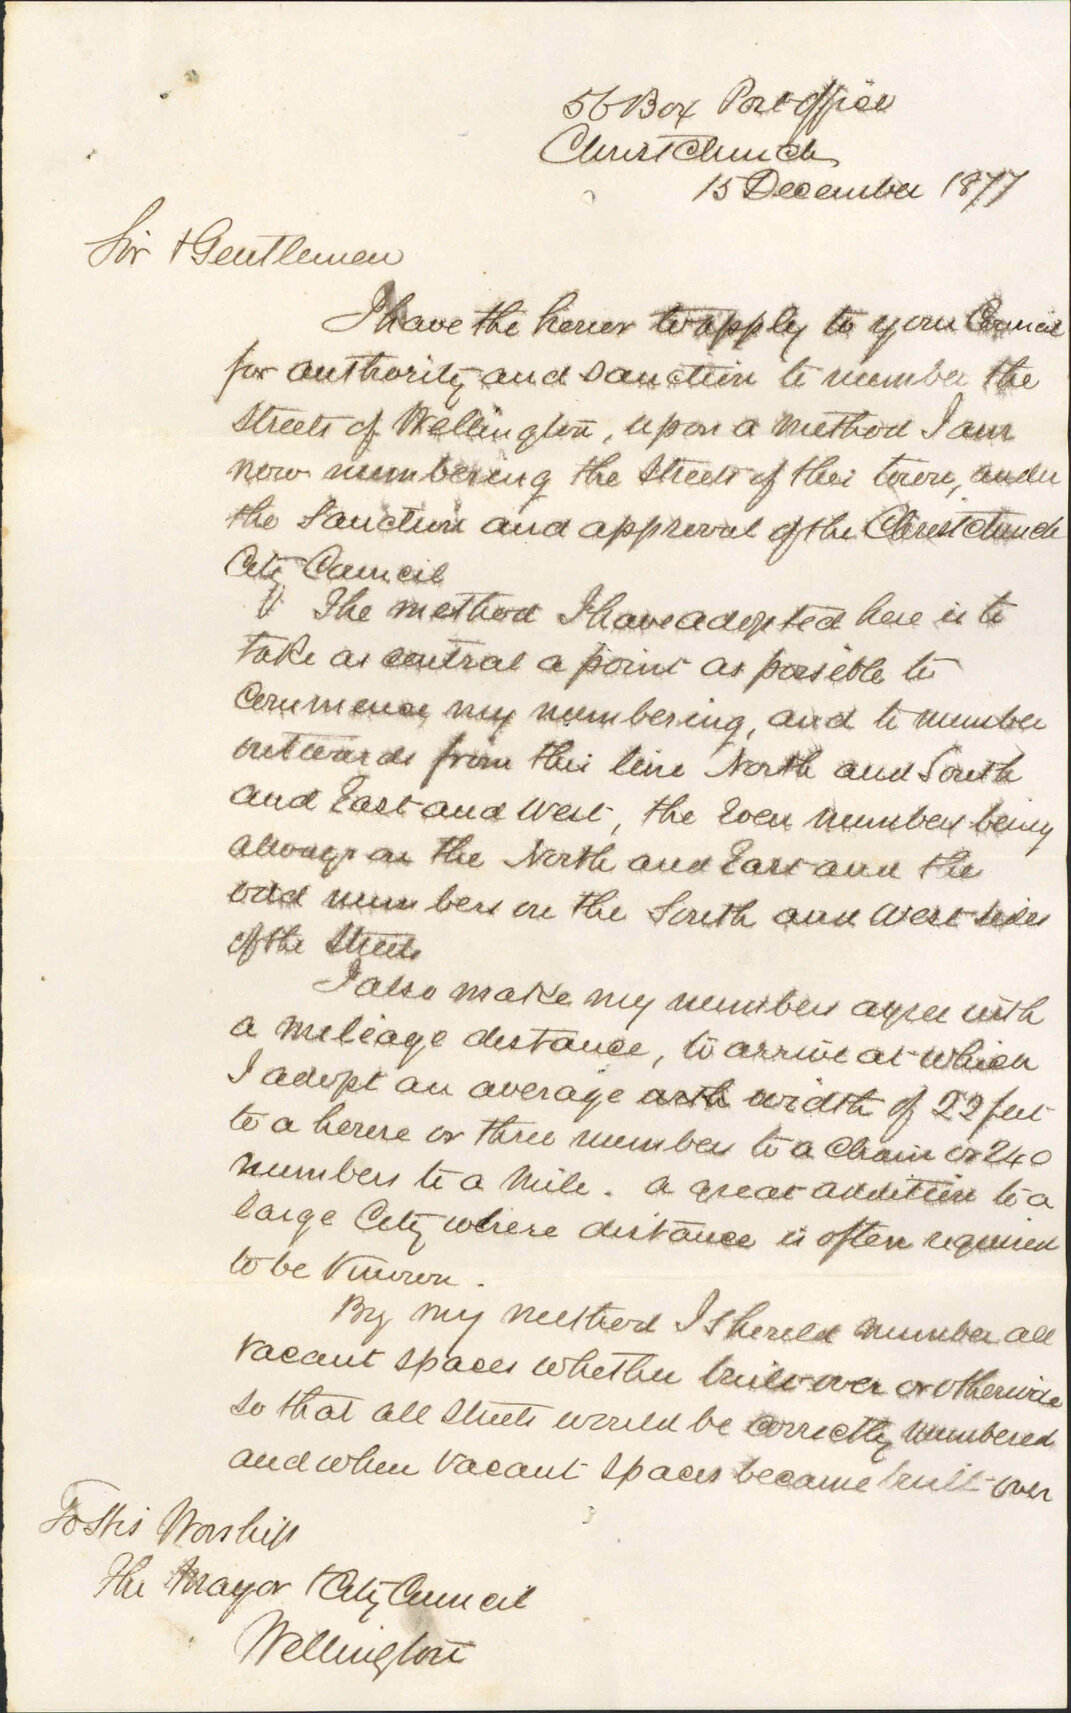 56 Box Post office
Christchurch
15 December 1877
Sir & Gentlemen
I have the honor to apply to your Council
for authority and sanction to number the
Streets of Wellington, upon a method I am
now numbering the Streets of this town, under
the Sanction and approval of the Christchurch
City Council
The method I have adopted here is to
take as central a point as possible to
Commence my numbering, and to number
outwards from this line North and South
and East and West, the Even numbers being
always on the North and East and the
odd numbers on the South and West sides
of the Streets
I also make my numbers agree with
a mileage distance, to arrive at which
I adopt an average width of 22 feet
to a house or three numbers to a Chain or 240
numbers to a Mile. a great addition to a
large City where distance is often required
to be Known.
By my method I should number all
vacant spaces whether built over or otherwise
so that all Streets would be correctly numbered
and when vacant spaces became built over
To His Worship
The Mayor & City Council
Wellington